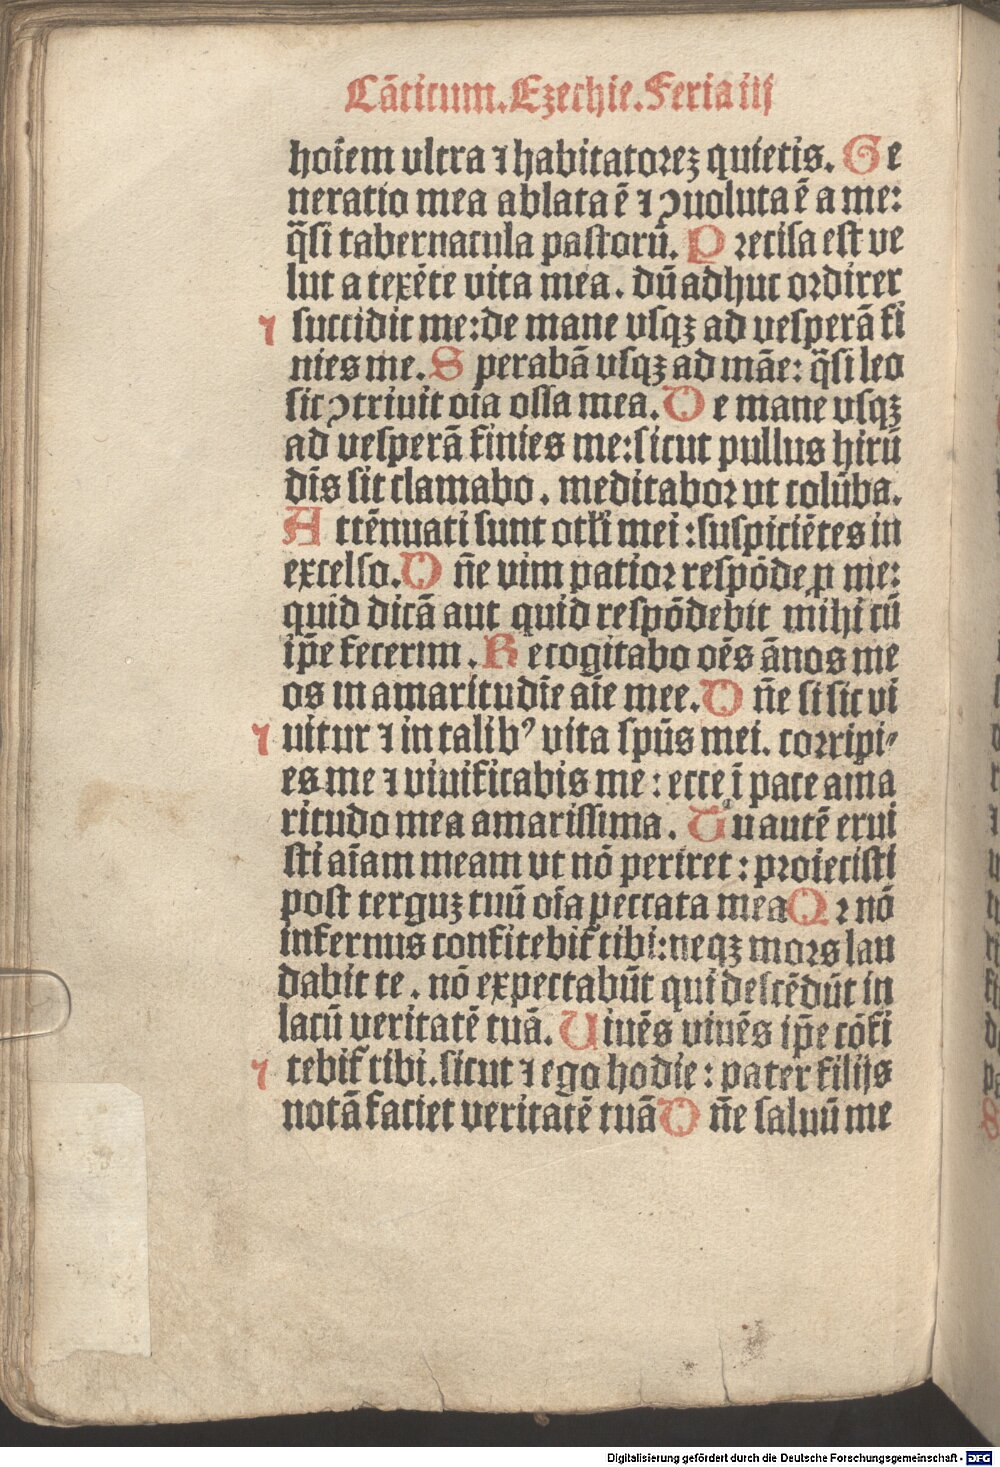 Cāticum. Ezechie. Feria iij
hoīem vltra ⁊ habitatoꝛeꝫ quietis. Ge
neratio mea ablata ē ⁊ ꝯuoluta ē a me:
q̄si tabernacula pastorū. Pꝛecisa est ve
lut a texēte vita mea. dū adhuc oꝛdirer
succidit me: de mane vsqꝫ ad vesperā fi
nies me. Sperabā vsqꝫ ad māe: q̄si leo
sic ꝯtriuit oīa ossa mea. De mane vsqꝫ
ad vesperā finies me: sicut pullus hirū
dīs sic clamabo. meditaboꝛ vt colūba.
Attēnuati sunt oclī mei: suspiciētes in
excelso. Dn̄e vim patioꝛ respōde ꝓ me:
quid dicā aut quid respōdebit mihi cū
ip̄e fecerim. Recogitabo oēs ānos me
os in amaritudīe aīe mee. Dn̄e si sic vi
uitur ⁊ in talibꝰ vita spūs mei. coꝛripi⸗
es me ⁊ viuificabis me: ecce ī pace ama
ritudo mea amarissima. Tu autē erui
sti aīam meam vt nō periret: pꝛoiecisti
post terguꝫ tuū oīa peccata mea Qꝛ nō
infernus confitebit̄ tibi: neqꝫ moꝛs lau
dabit te. nō expectabūt qui descēdūt in
lacū veritatē tuā. Uiuēs viuēs ip̄e cōfi
tebit̄ tibi. sicut ⁊ ego hodie: pater filijs
notā faciet veritatē tuā Dn̄e saluū me
Digitalisierung gefördert durch die Deutsche Forschungsgemeinschaft - DFG